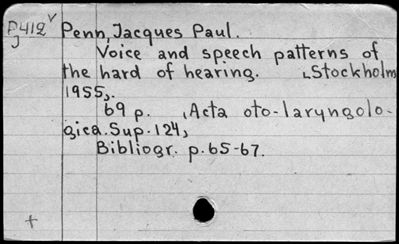 P412 Y Penn, Jacques Paul.
J Voice and speech patterns of
the hard of hearing. Stockholm
1955,.
69 p. (Acta oto-laryngolo-
gica. Sup. 124,
Bibliogr. p. 65-67.
+